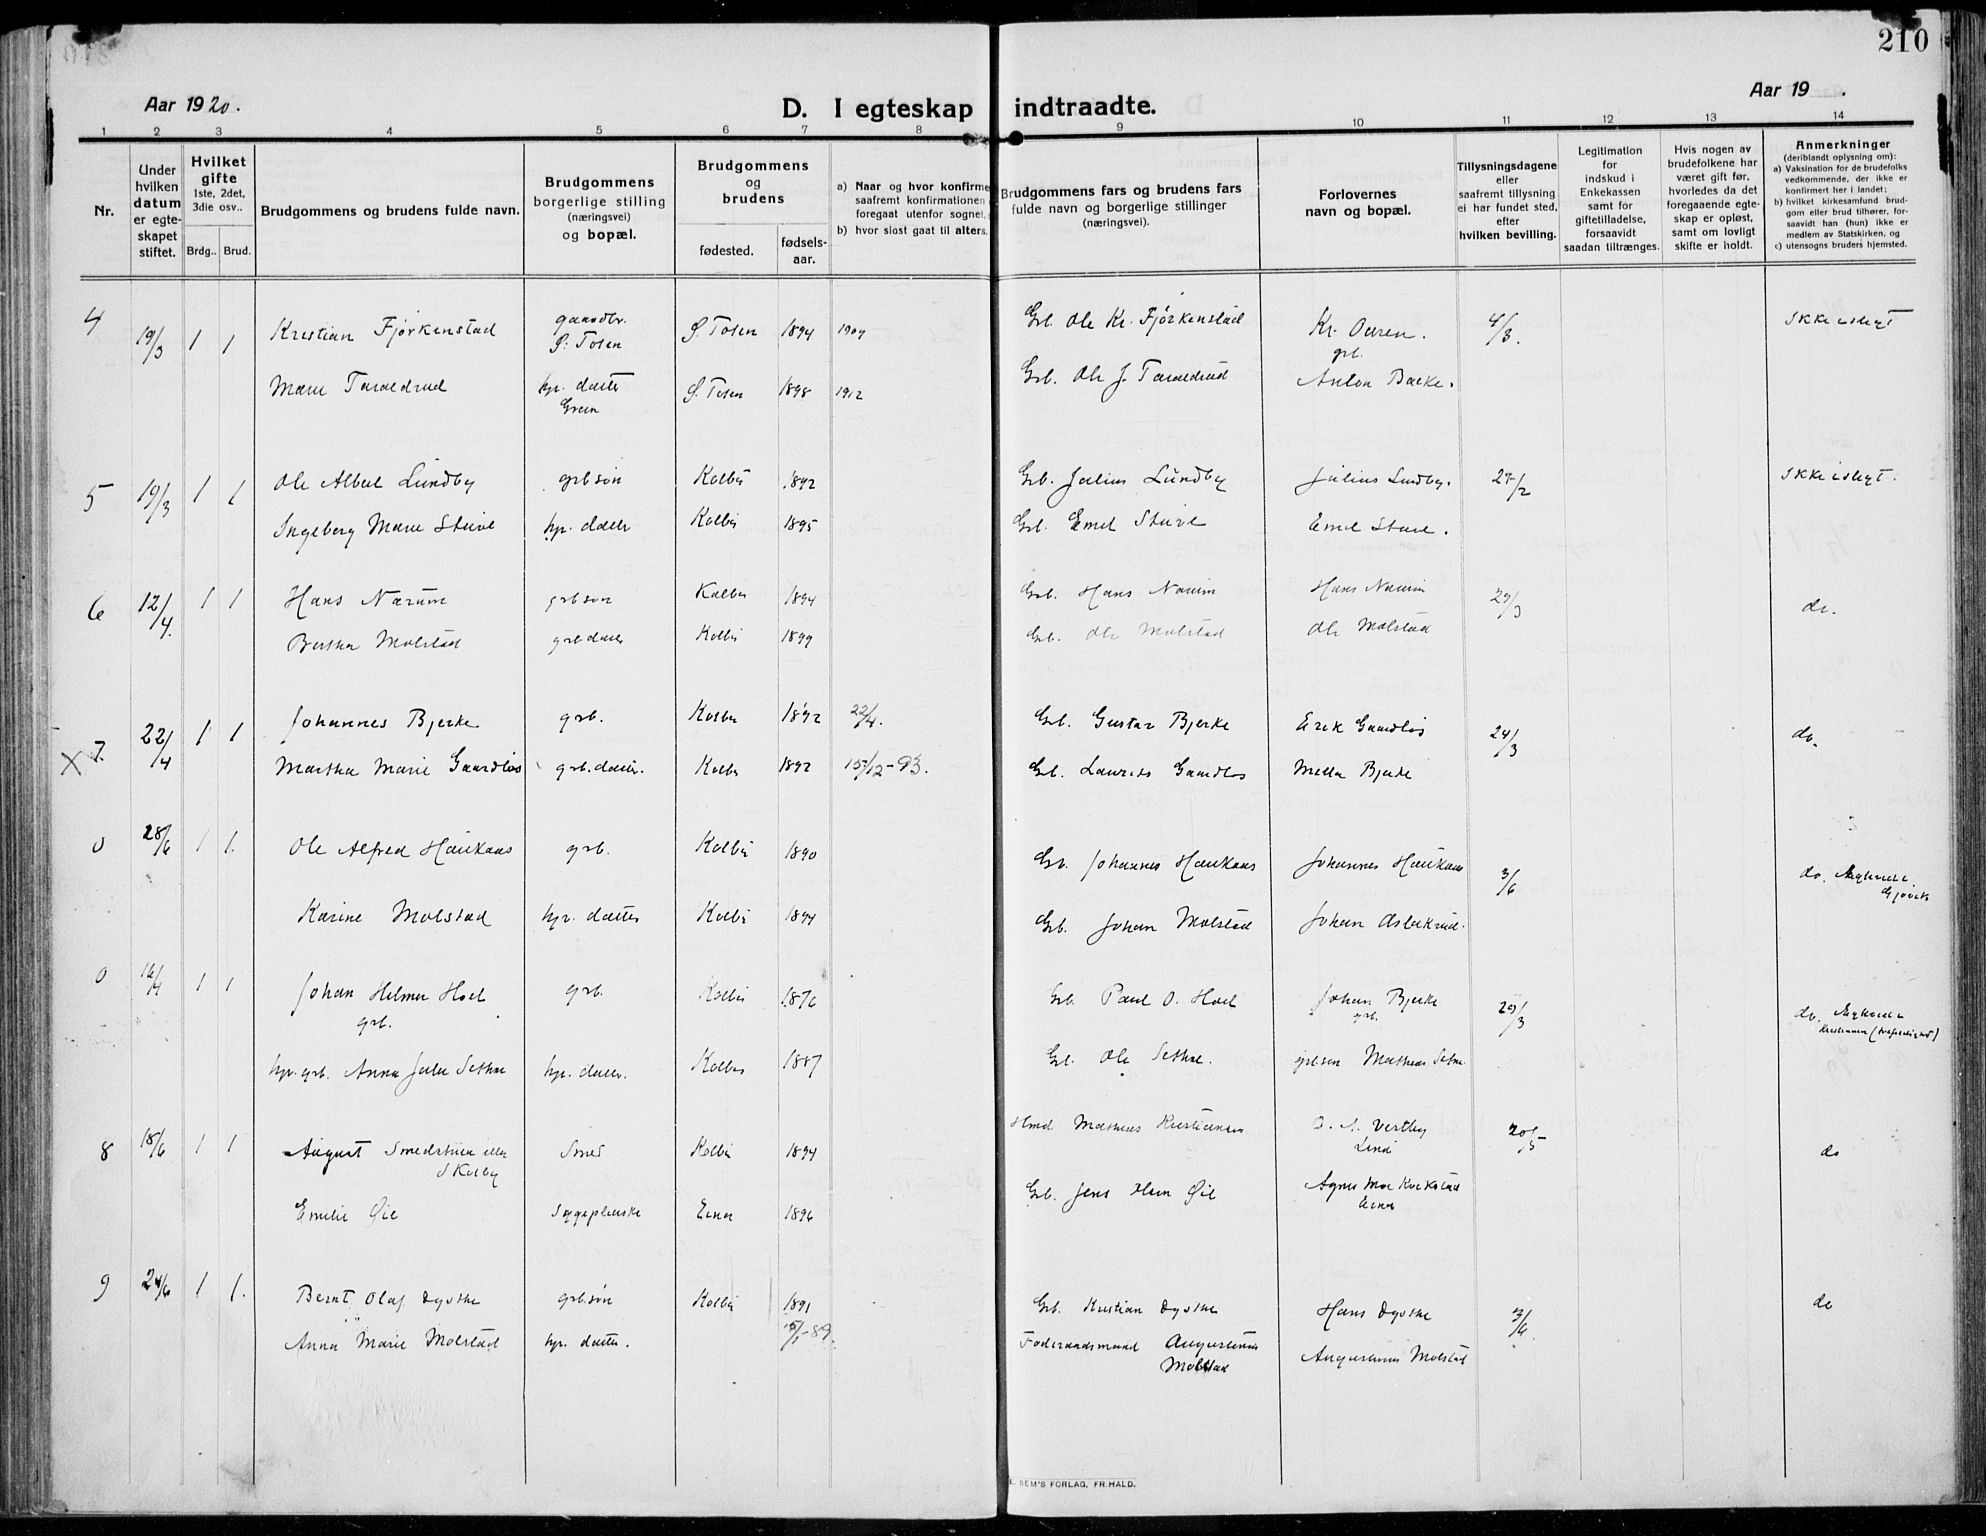 210
Aar 1920.
D. I egteskap indtraadte.
Aar 19 .
1 2 3 4 5 6 7 8 9 10 11 12 13 14
Nr.
Under hvilken datum er egte- skapet stiftet.
Hvilket gifte
1ste, 2det, 3die osv..
Brdg.. Brud.
Brudgommens og brudens fulde navn.
Brudgommens borgerlige stilling (næringsvei) og bopæl.
Brudgommens og brudens
fødested.
fødsels- aar.
a) Naar og hvor konfirme
saafremt konfirmationen
foregaat utenfor sognet,
b) hvor sidst gaat til alters.
Brudgommens fars og brudens fars
fulde navn og borgerlige stillinger
(næringsvei).
Forlovernes
navn og bopæl.
Tillysningsdagene
eller
saafremt tillysning
ei har fundet sted,
efter
hvilken bevilling.
Legitimation
for
indskud i
Enkekassen
samt for
giftetilladelse,
forsaavidt
saadan tiltrænges.
Hvis nogen av
brudefolkene har
været gift før,
hvorledes da det
foregaaende egte-
skap er opløst,
samt om lovligt
skifte er holdt.
Anmerkninger
(deriblandt oplysning om):
a) Vaksination for de brudefolks
vedkommende, der ikke er
konfirmert her i landet;
b) hvilket kirkesamfund brud-
gom eller brud tilhører, for-
saavidt han (hun) ikke er
medlem av Statskirken, og
c) utensogns bruders hjemsted.
4 19/3 1 1 Kristian Fjørkenstad gaardbr. Ø. Toten Ø. Toten 1894 1909 Grb. Ole Kr. Fjørkenstad Kr. Øuren. grb. 4/3. Ikke i slegt
Marie Taraldrud hp. datter Ø. Toten 1898 1912 Grb. Ole J. Taraldrud Anton Bakke.
5 19/3 1 1 Ole Albert Lundby grb søn Kolbu 1892 Grb. Julius Lundby Julius Lundby. 27/2 Ikke i slegt.
Ingeborg Marie Stuve hp. datter Kolbu 1895 Grb. Emil Stuve Emil Stuve.
6 12/4. 1 1 Hans Narum grb søn Kolbu 1894 Grb. Hans Narum Hans Narum 29/3 do.
Berthe Molstad grb datter Kolbu 1899 Grb. Ole Molstad Ole Molstad
X 7. 22/4 1 1 Johannes Bjerke grb. Kolbu 1892 22/4. Grb. Gustav Bjerke Erik Gaardløs 24/3 do.
Marthe Marie Gaardløs grb. datter. Kolbu 1892 15/12-93. Grb. Laurits Gaardløs Bjerke
0 28/6 1 1. Ole Alfred Haukaas grb. Kolbu 1890 Grb. Johannes Haukaas Johannes Haukaas 3/6 do. Gjøvik
Karine Molstad hp. datter Kolbu 1894 Grb. Johan Molstad Johan Aslakrud.
0 16/4 1 1 Johan Helmer Hoel grb. grb. Kolbu 1876 Grb. Paul O. Hoel Johan Bjerke grb. 29/3 do.
hp. grb. Anna Julie Sethne hp. datter. Kolbu 1887 Grb. Ole Sethne. grb søn Mathias Sethne
8 18/6 1 1 August Smedstuen eller Skolby Smed Kolbu 1894 Hmd Mathias Kristiansen O. A. Vestby Lena 20/5 do
Emilie Øie Syerpleiske Eina 1896 Grb. Jens Hsen Øie Eina
9 24/6 1 1. Bernt Olaf Dyste grb søn Kolbu 1891 Grb. Kristian Dyste Hans Dyste 3/6. do
Anna Marie Molstad hp. datter. 15/1-89. Føderaadsmand Augustinus Molstad Augustinus Molstad
E. SEM'S FORLAG, FR.HALD.